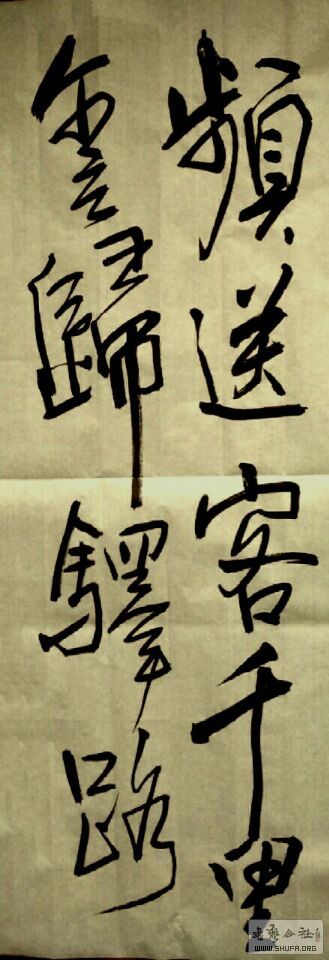 頻送客千里
歸驛路
书艺公社
WWW.SHUFA.ORG